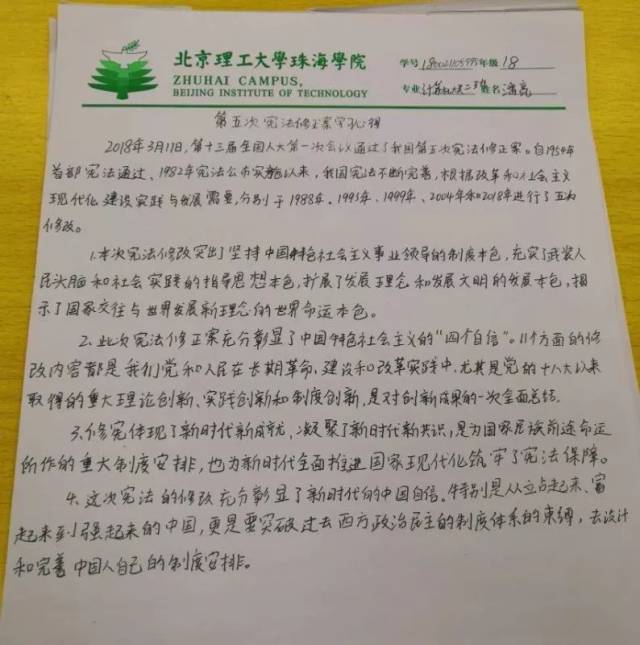 北京理工大學珠海學院
ZHUHAI CAMPUS,
BEIJING INSTITUTE OF TECHNOLOGY
学号 年级 18
专业 计算机 二班 姓名
第五次宪法修正案学心得
2018年3月11日,第十三届全国人大第一次会议通过了我国第五次宪法修正案。自1954年
首部宪法通过、1982年宪法公布实施以来,我国宪法不断完善,根据改革和社会主义
现代化建设实践与发展需要,分别于1988年、1993年、1999年、2004年和2018年进行了五次
修改。
1.本次宪法修改突出了坚持中国特色社会主义事业领导的制度本色,充实了武装人
民头脑和社会实践的指导思想本色,扩展了发展理念和发展文明的发展本色,揭
示了国家交往与世界发展新理念的世界命运本色。
2.此次宪法修正案充分彰显了中国特色社会主义的“四个自信”。11个方面的修
改内容都是我们党和人民在长期革命、建设和改革实践中,尤其是党的十八大以来
取得的重大理论创新、实践创新和制度创新,是对创新成果的一次全面总结。
3.修宪体现了新时代新成就,凝聚了新时代新共识,是为国家民族前途命运
所作的重大制度安排,也为新时代全面推进国家现代化筑牢了宪法保障。
4.这次宪法的修改充分彰显了新时代的中国自信。特别是从立占起来、富
起来到强起来的中国,更是要突破过去西方政治民主的制度体系的束缚,去设计
和完善中国人自己的制度安排。